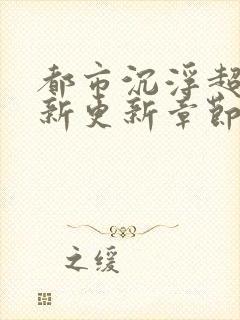 都市沉浮超
新更新章節
之缓